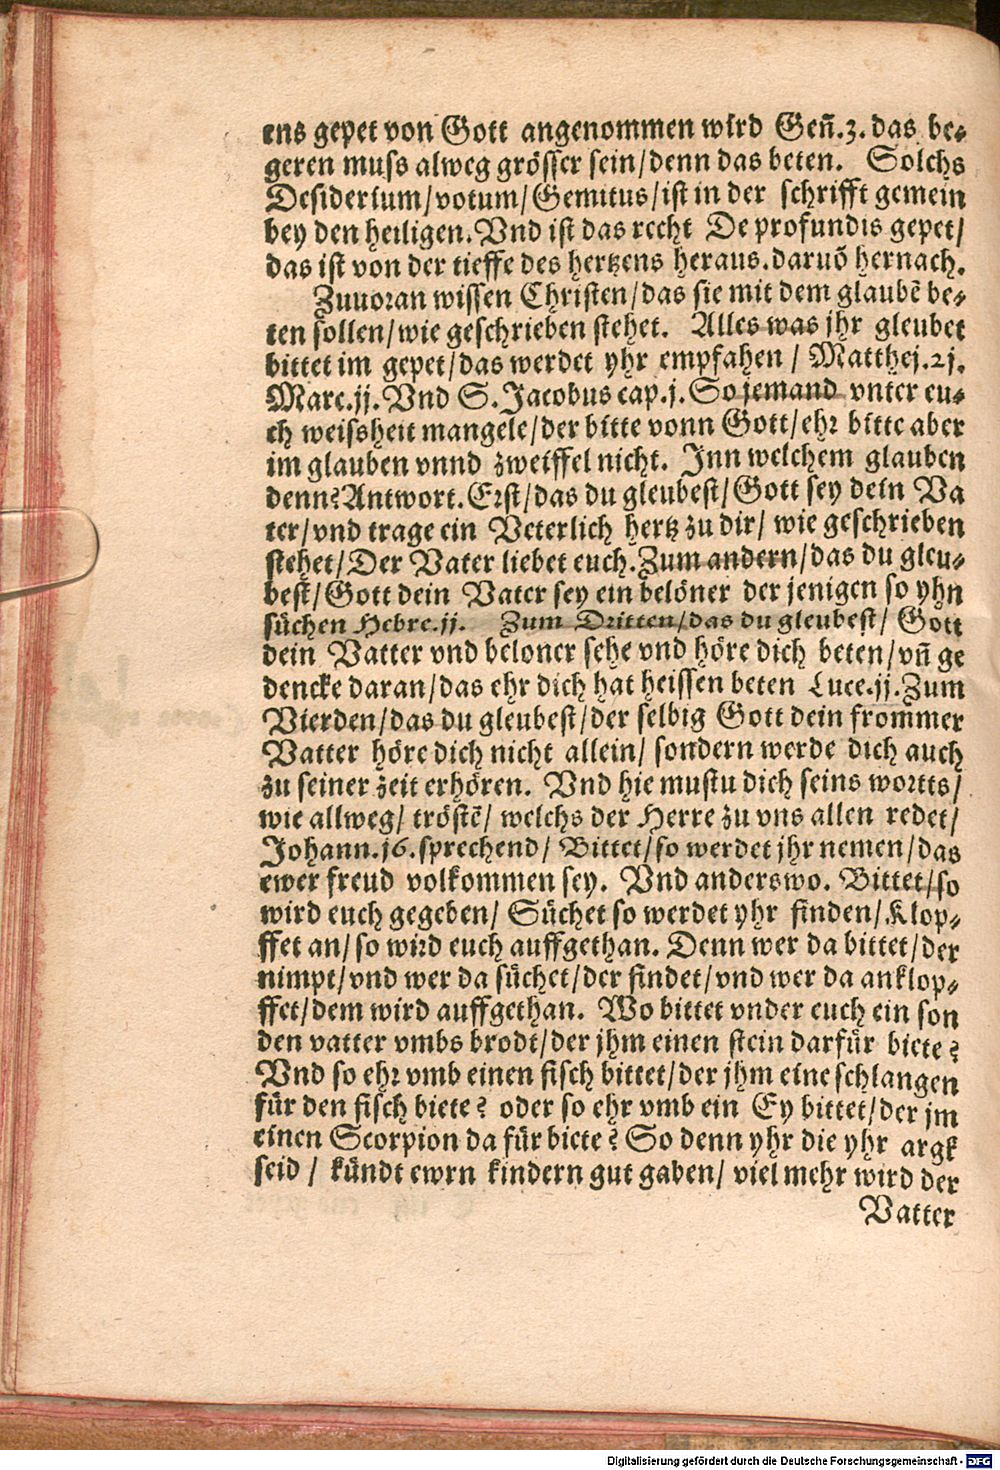 ens gepet von Gott angenommen wird Geñ.3. das be⸗
geren muſs alweg gröſſer ſein/denn das beten. Solchs
Deſiderium/votum/Gemitus/iſt in der ſchrifft gemein
bey den heiligen. Vnd iſt das recht De profundis gepet/
das iſt von der tieffe des hertzens heraus. daruõ hernach.
Zuuoran wiſſen Chriſten/das ſie mit dem glaubẽ be⸗
ten ſollen/wie geſchrieben ſtehet. Alles was jhr gleubet
bittet im gepet/das werdet yhr empfahen / Matthej.2j.
Marc.jj. Vnd S. Jacobus cap.j. So jemand vnter eu⸗
ch weiſsheit mangele/der bitte vonn Gott/ehr bitte aber
im glauben vnnd zweiffel nicht. Inn welchem glauben
denn? Antwort. Erſt/das du gleubeſt/Gott ſey dein Va
ter/vnd trage ein Veterlich hertz zu dir/ wie geſchrieben
ſtehet/Der Vater liebet euch. Zum andern/das du gleu⸗
beſt/Gott dein Vater ſey ein belöner der jenigen ſo yhn
ſüchen Hebre.jj. Zum Dritten/das du gleubeſt/ Gott
dein Vatter vnd beloner ſehe vnd höre dich beten/vñ ge
dencke daran/das ehr dich hat heiſſen beten Luce.jj. Zum
Vierden/das du gleubeſt/der ſelbig Gott dein frommer
Vatter höre dich nicht allein/ ſondern werde dich auch
zu ſeiner zeit erhören. Vnd hie muſtu dich ſeins wortts/
wie allweg/ tröſtẽ/ welchs der Herre zu vns allen redet/
Johann.j6. ſprechend/ Bittet/ſo werdet jhr nemen/das
ewer freud volkommen ſey. Vnd anderswo. Bittet/ſo
wird euch gegeben/ Süchet ſo werdet yhr finden/Klop⸗
ffet an/ſo wird euch auffgethan. Denn wer da bittet/der
nimpt/vnd wer da ſüchet/der findet/vnd wer da anklop⸗
ffet/dem wird auffgethan. Wo bittet vnder euch ein ſon
den vatter vmbs brodt/der jhm einen ſtein darfür biete?
Vnd ſo ehr vmb einen fiſch bittet/der jhm eine ſchlangen
für den fiſch biete? oder ſo ehr vmb ein Ey bittet/der jm
einen Scorpion da für biete? So denn yhr die yhr argk
ſeid / kündt ewrn kindern gut gaben/ viel mehr wird der
Vatter
Digitalisierung gefördert durch die Deutsche Forschungsgemeinschaft - DFG